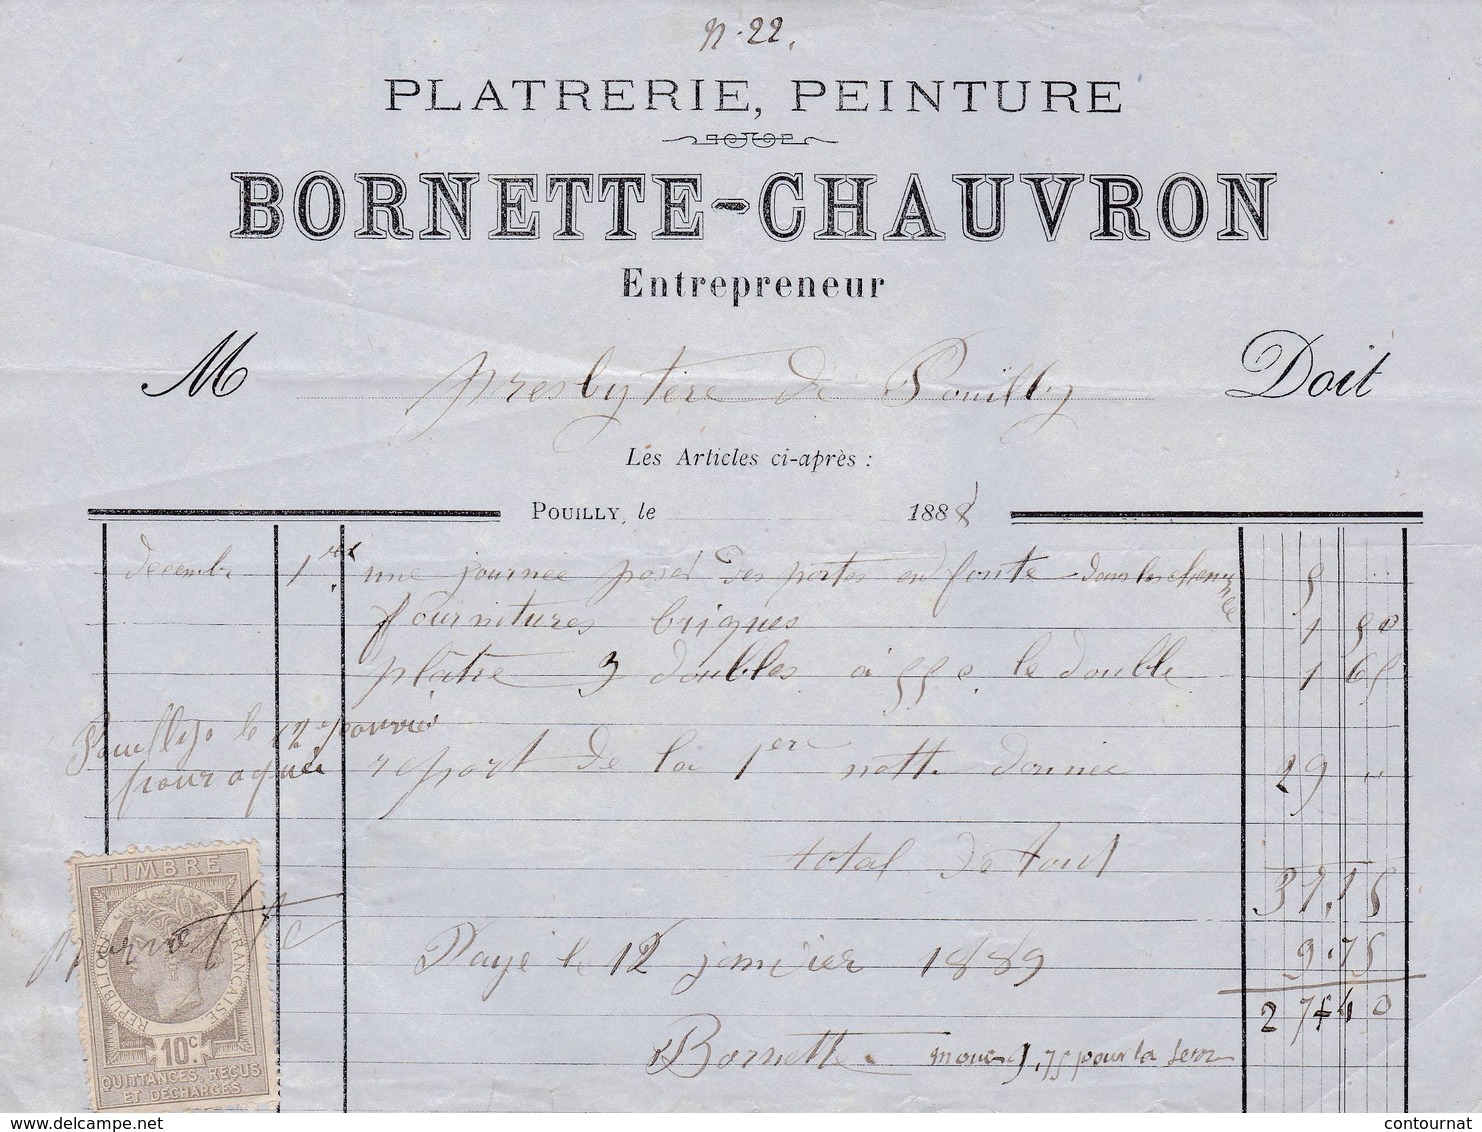 N. 22.
PLATRERIE, PEINTURE
BORNETTE-CHAUVRON
Entrepreneur
M presbytère de Pouilly Doit
Les Articles ci-après :
POUILLY, le 1888
decembre 1er une journee posé des portes en fonte dans les cheminée 5 "
fournitures briques 1 50
plâtre 3 doubles à 55 c le double 1 65
Pouilly le 12 janvier
pour aquié
report de la 1ere notte donnee 29 "
total de tout 37.15
Payé le 12 janvier 1889 9.75
27 40
Bornette moins 9,75 pour la
TIMBRE
RÉPUBLIQUE FRANÇAISE
10c
QUITTANCES, REÇUS
ET DÉCHARGES
delcampe.net
contournat